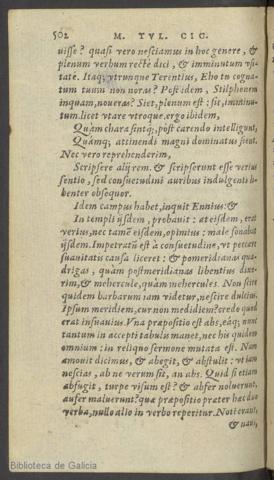 502 M. TVL. CIC.
uisse? quasi vero nesciamus in hoc genere, &
plenum verbum recte dici, & imminutum vsi-
tatè. Itaq; vtrunque Terentius, Eho tu cogna-
tum tuum non noras? Post idem, Stilphonem
inquam, noueras? Siet, plenum est: sit, imminu-
tum. licet vtare vtroque. ergo ibidem,
Quàm chara sintq; post carendo intelligunt,
Quámq; attinendi magni dominatus sient.
Nec vero reprehenderim,
Scripsere alij rem. & scripserunt esse verius
sentio, sed consuetudini auribus indulgenti li-
benter obsequor.
Idem campus habet, inquit Ennius: &
In templi ijsdem, probauit: at eisdem, erat
verius, nec tamẽ eisdem, opimius: male sonabat
ijsdem. Impetratũ est à consuetudine, vt peccare
suauitatis causa liceret: & pomeridianas qua-
drigas, quàm postmeridianas libentius dixe-
rim, & mehercule, quàm mehercules. Non scire
quidem barbarum iam videtur, nescire dulcius.
Ipsum meridiem, cur non medidiem? credo quod
erat insuauius. Vna præpositio est abs, eáq; nunc
tantum in accepti tabulis manet, nec his quidem
omnium: in reliquo sermone mutata est. Nam
amouit dicimus, & abegit, & abstulit: vt iam
nescias, ab ne verum sit, an abs. Quid si etiam
abfugit, turpe visum est? & abfer noluerunt,
aufer maluerunt? quæ præpositio præter hæc duo
verba, nullo alio in verbo reperitur. Noti erant,
& naui,
Biblioteca de Galicia